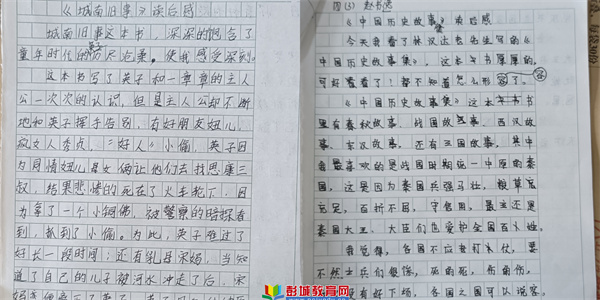 《城南旧事》读后感
城南旧事这本书，深深的饱含了
童年时代的英子历尽沧桑。使我感受深刻。
这本书写了英子和一章章的主人
公一次次的认识，但是主人公却不断
地和英子挥手告别，有好朋友妞儿、
疯女人秀贞、"好人"小偷，英子因
为同情妞儿母女俩让他们去找思康三
叔，结果悲惨的死在了火车轮下，因
为拿了一个小铜佛，被警察的暗探看
到，抓到了小偷。为此，英子难过了
好长一段时间；还有乳母宋妈，当知
道了自己的儿子被河水冲走了后，宋
四(3) 赵书逸
《中国历史故事集》读后感
今天我看了林汉达先生写的《
中国历史故事集》。这本书厚厚的，
可好看看了！都不知道怎么形容了。
《中国历史故事集》这本书
里有春秋故事、战国故事、西汉故
事、东汉故事、还有三国故事，其中
我最喜欢的是战国时期统一中原的秦
国，这是因为秦国兵强马壮，粮草
充足，百折不屈，守信用，最主还是
秦国大王、大臣们也爱护全国百姓。
我觉得，各国不应要打火仗，要
不然士兵们很惨，死的死，伤的伤，
没有好下场，各国之国可以说客
彭城教育网